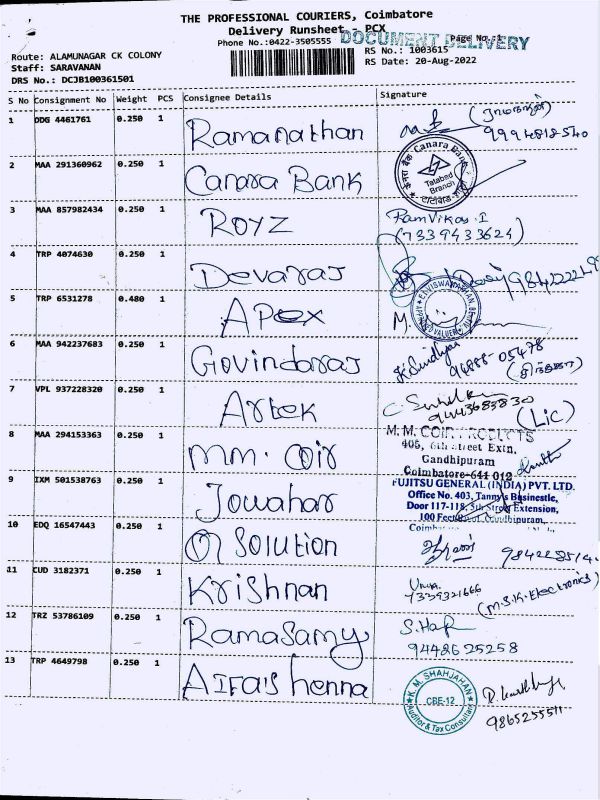 THE PROFESSIONAL COURIERS, Coimbatore
Delivery Runsheet - PCX
Phone No.:0422-3505555
DOCUMENT DELIVERY
Page No.:1
Route: ALAMUNAGAR CK COLONY
RS No.: 1003615
Staff: SARAVANAN
RS Date: 20-Aug-2022
DRS No.: DCJB100361501
S No Consignment No Weight PCS Consignee Details Signature
1 DDG 4461761 0.250 1 Ramanathan
9994818540
2 MAA 291360962 0.250 1 Canara Bank
Canara Bank
Tatabad
Branch
3 MAA 857982434 0.250 1 ROYZ RamVikas.I
(7339433624)
4 TRP 4074630 0.250 1 Devaraj
5 TRP 6531278 0.480 1 APEX M.
6 MAA 942237683 0.250 1 Govindaraj
94888 05478
7 VPL 937228320 0.250 1 Artek
9443683830
(Lic)
8 MAA 294153363 0.250 1 MM. COIR M.M. COIR PRODUCTS
405, 6th Street Extn,
Gandhipuram
Coimbatore-641 012
9 IXM 501538763 0.250 1 Jowahar FUJITSU GENERAL (INDIA) PVT. LTD.
Office No. 403, Tanny's Businestle,
Door 117-118, 5th Street Extension,
100 Feet Road, Gandhipuram,
10 EDQ 16547443 0.250 1 Solution
11 CUD 3182371 0.250 1 Krishnan
7339321666
(M.S.K. Electronics)
12 TRZ 53786109 0.250 1 Ramasamy
9448625258
13 TRP 4649798 0.250 1 Alfa's henna
K. M. SHAHJAHAN
CBE-12
Auditor & Tax Consultant
9865255511